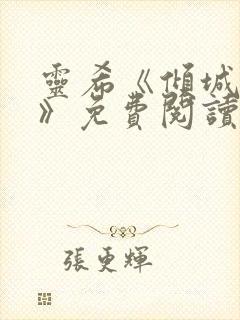 靈希《傾城
》免費閱讀
張更輝